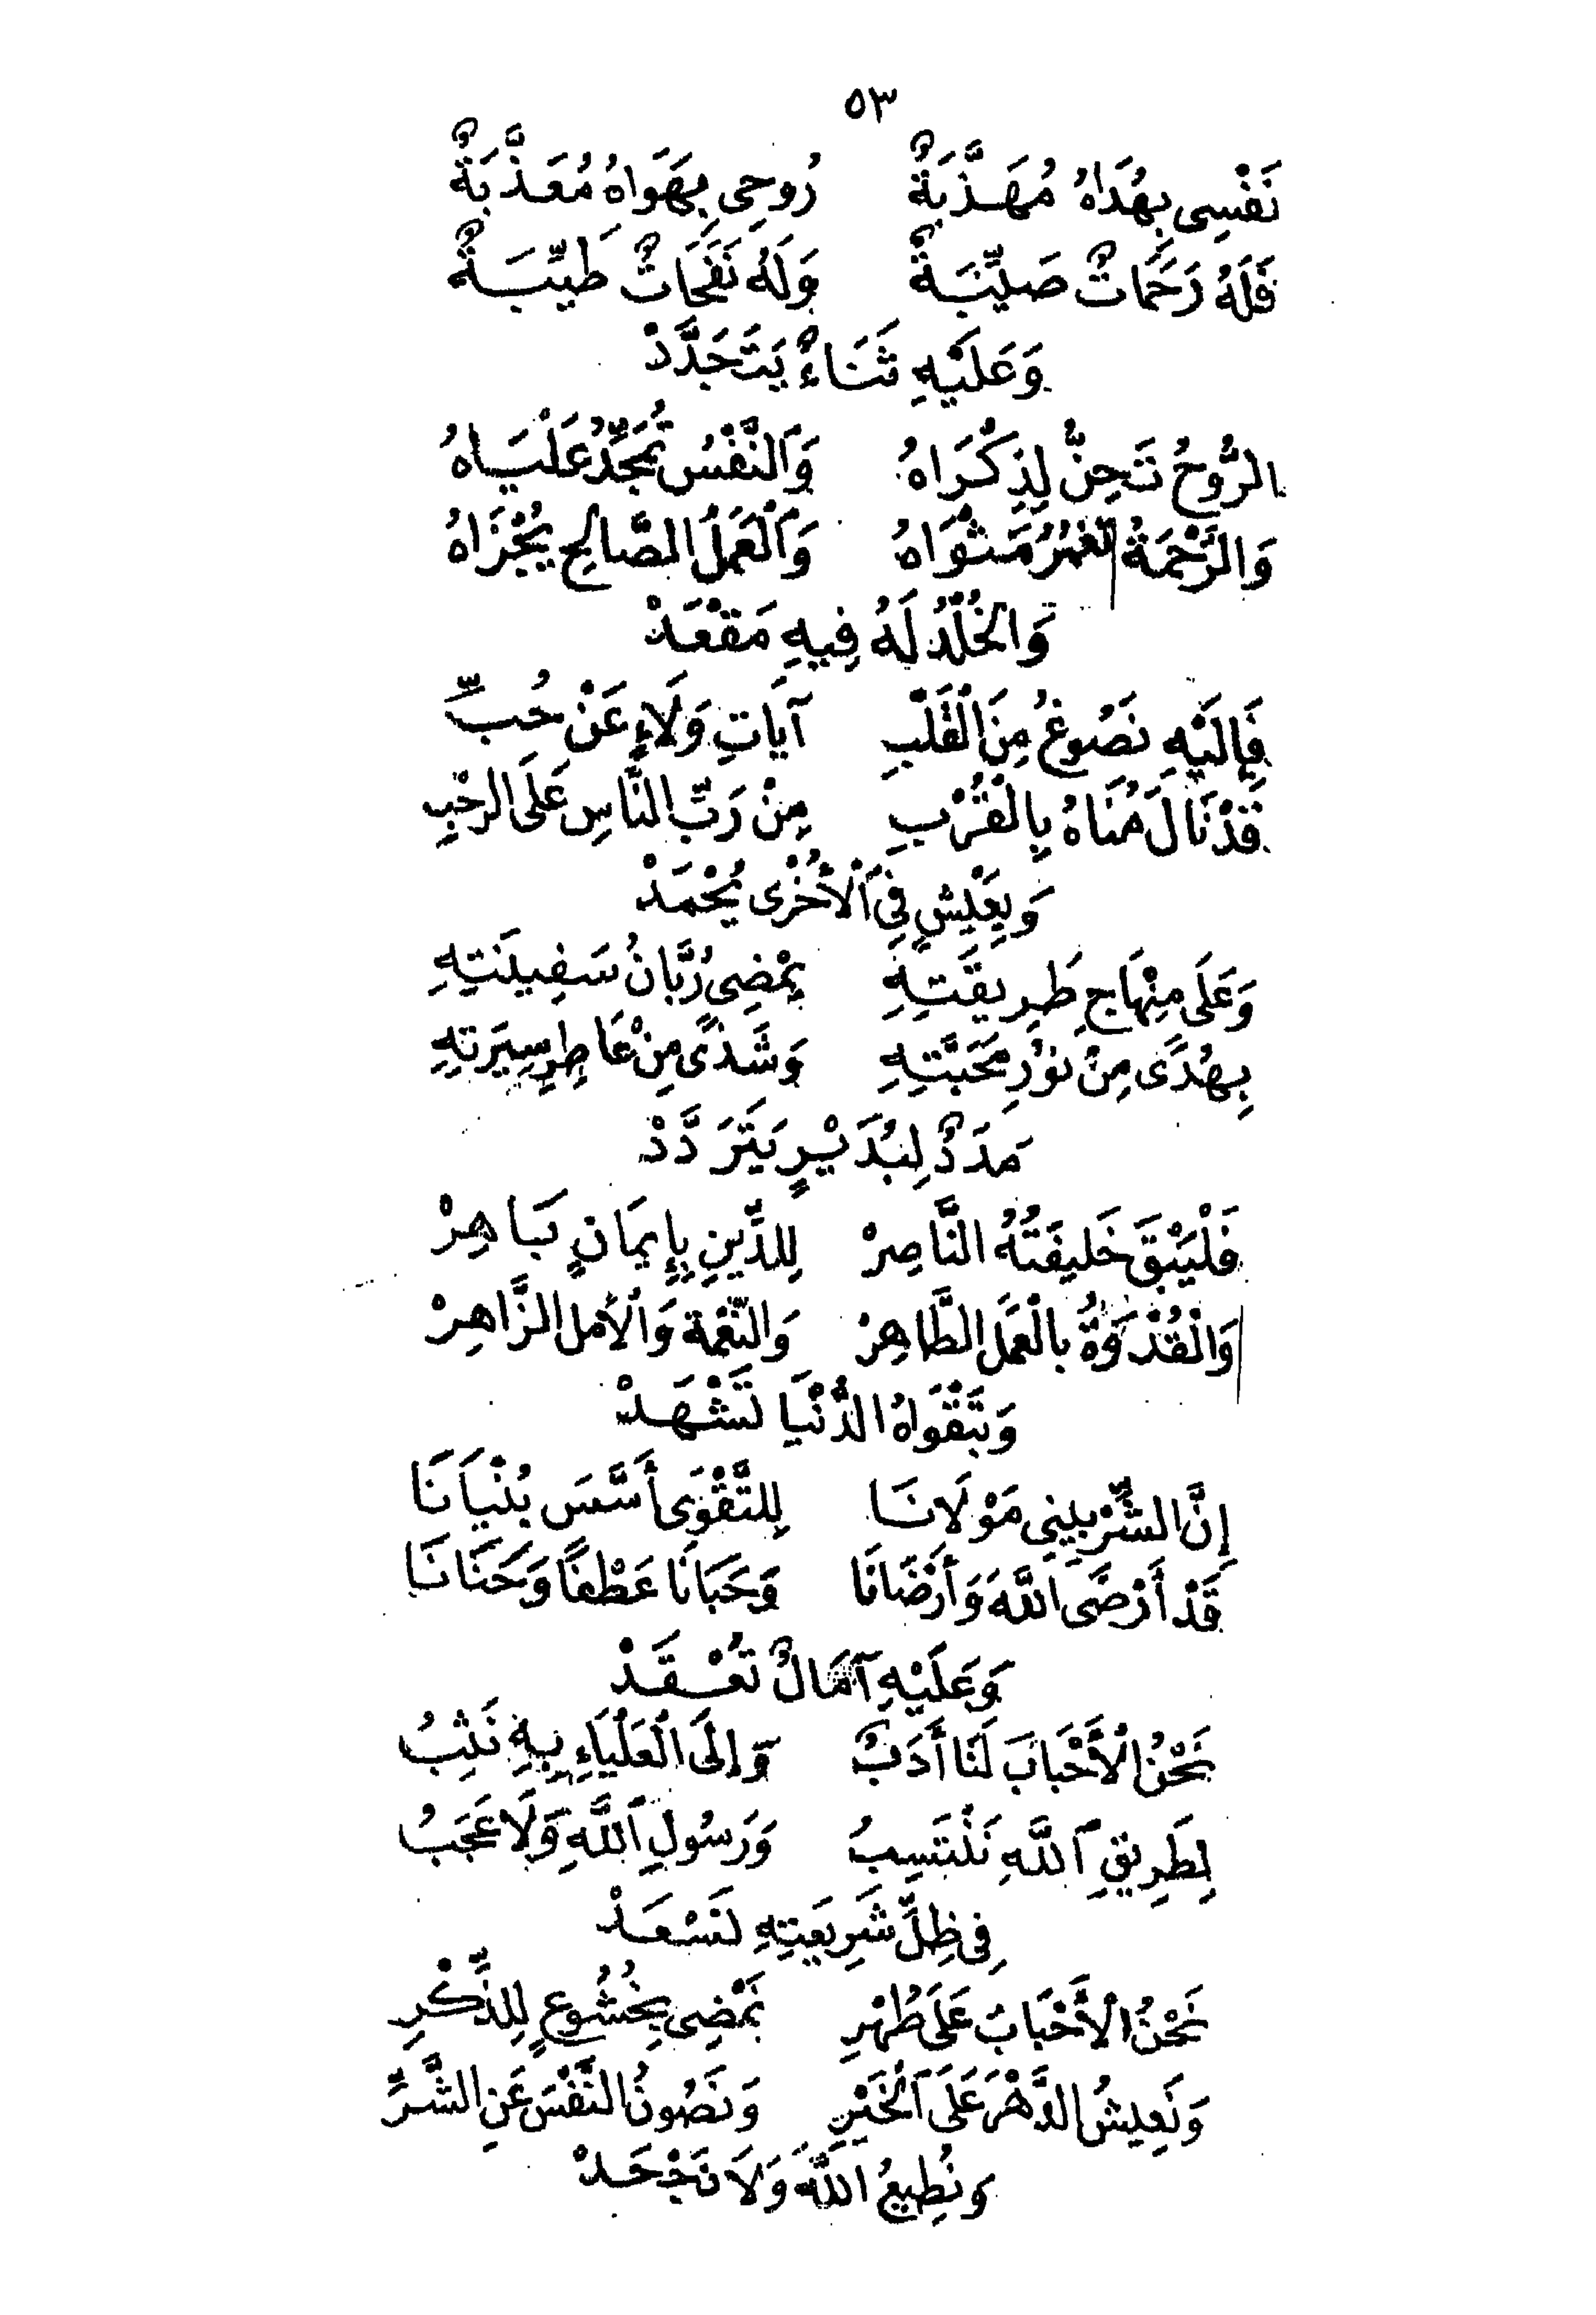 ٥٣
نَفْسِى بِهُدَاهُ مُهَذَّبَةٌ رُوحِى بِهَوَاهُ مُعَذَّبَةٌ
فَلَهُ رَحَمَاتٌ صَيِّبَةٌ وَلَهُ نَفَحَاتٌ طَيِّبَةٌ
وَعَلَيْهِ ثَنَاءٌ يَتَجَدَّدْ
الرُّوحُ تَحِنُّ لِذِكْرَاهُ وَالنَّفْسُ تُمَجِّدُ عَلْيَاهُ
وَالرَّحْمَةُ تَغْمُرُ مَثْوَاهُ وَالْعَمَلُ الصَّالِحِ يُجْزَاهُ
وَالْخُلْدُ لَهُ فِيهِ مَقْعَدْ
فَإِلَيْهِ نَصُوغُ مِنَ الْقَلْبِ آيَاتِ وَلَاءٍ عَنْ حُبِّ
قَدْ نَالَ مُنَاهُ بِالْقُرْبِ مِنْ رَبِّ النَّاسِ عَلَى الرحْبِ
وَبِعَيْشٍ فِى الْأُخْرَى يُحْمَدْ
وَعَلَى مِنْهَاجِ طَرِيقَتِهِ يَمْضِى رُبَّانُ سَفِينَتِهِ
بِهُدًى مِنْ نُورِ مَحَبَّتِهِ وَشَذًى مِنْ عَاطِرِ سِيرَتِهِ
مَدَدٌ لِبُدَيْرٍ يَتَرَدَّدْ
فَلْيَبْقَ خَلِيفَتُهُ النَّاصِرْ لِلدِّينِ بِإِيمَانٍ بَاهِرْ
وَالْقُدْوَةُ بالْعَمَلِ الطَّاهِرْ وَالنِّعْمَة وَالأمل الزَّاهِرْ
وَبِتَقْوَاهُ الدُّنْيَا تَشْهَدْ
إِنَّ الشِّرْبِينِى مَوْلَانَا لِلتَّقْوَى أَسَّسَ بُنْيَانَا
قَدْ أَرْضَى اللَّهَ وَأَرْضَانَا وَحَبَانَا عَطْفًا وَحَنَانَا
وَعَلَيْهِ آمَالٌ تُعْقَدْ
نَحْنُ الْأَحْبَابَ لَنَا أَدَبٌ وَإِلَى الْعَلْيَاءِ بِهِ نَثِبُ
لِطَرِيقِ اللَّهِ نَنْتَسِبُ وَرَسُولِ اللَّهِ وَلَا عَجَبُ
فِى ظِلِّ شَرِيعَتِهِ نَسْعَدْ
نَحْنُ الْأَحْبَابَ عَلَى طُهْرِ نَمْضِى بِخُشُوعٍ لِلذِّكْرِ
وَنَعِيشُ الدَّهْرَ عَلَى الْخَيْرِ وَنَصُونُ النَّفْسَ عَنِ الشَّرِّ
وَنُطِيعُ اللَّهَ وَلَا نَجْحَدْ